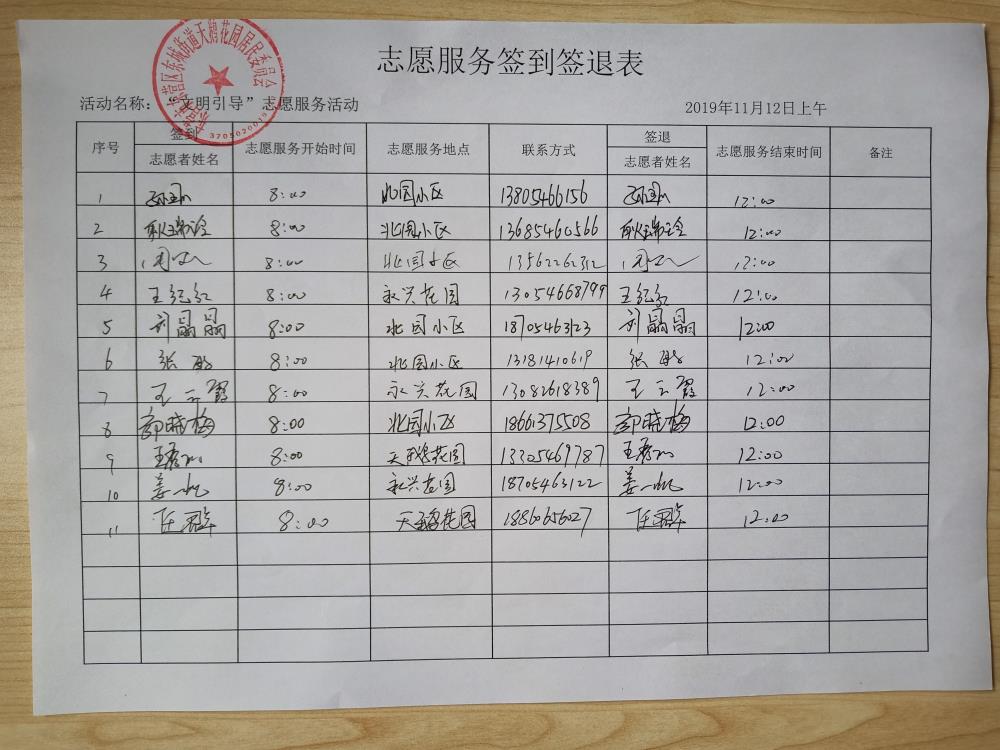 志愿服务签到签退表
活动名称：“文明引导”志愿服务活动 2019年11月12日上午
序号 签到 志愿者姓名 志愿服务开始时间 志愿服务地点 联系方式 签退 志愿者姓名 志愿服务结束时间 备注
1 8:00 北园小区 13805466156 12:00
2 8:00 北园小区 13685460566 12:00
3 8:00 北园小区 13562262312 12:00
4 王纪红 8:00 永兴花园 13054668799 王纪红 12:00
5 刘晶晶 8:00 北园小区 18705463123 刘晶晶 12:00
6 张 8:00 北园小区 13181410619 张 12:00
7 王云霞 8:00 永兴花园 13082618389 王云霞 12:00
8 郭晓梅 8:00 北园小区 18661375508 郭晓梅 12:00
9 王 8:00 天鹅花园 13305469787 王 12:00
10 姜 8:00 永兴花园 18705463122 姜 12:00
11 任 8:00 天鹅花园 18860656027 任 12:00